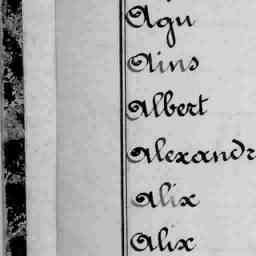 Agu
Ains
Albert
Alexandr
Alix
Alix